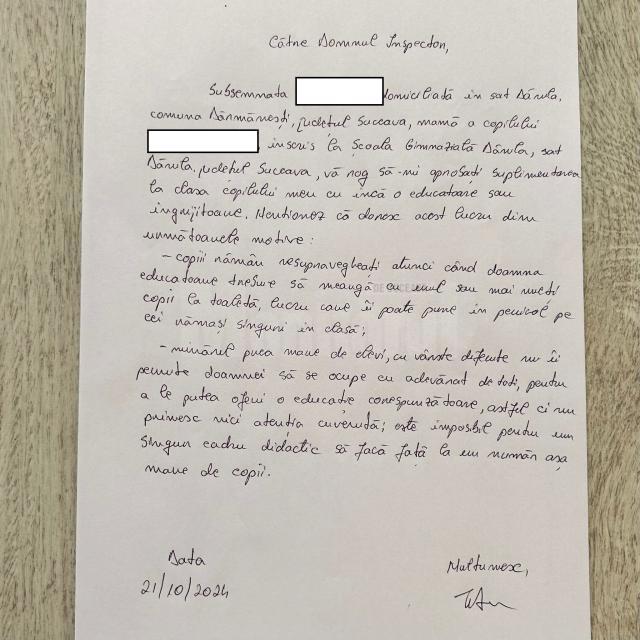 Către Domnul Inspector,
Subsemnata domiciliată în sat Dănila,
comuna Dărmănești, județul Suceava, mamă a copilului
, înscris la Școala Gimnazială Dănila, sat
Dănila, județul Suceava, vă rog să-mi aprobați suplimentarea
la clasa copilului meu cu încă o educatoare sau
îngrijitoare. Menționez că doresc acest lucru din
următoarele motive:
- copiii rămân nesupravegheați atunci când doamna
educatoare trebuie să meargă cu unul sau mai mulți
copii la toaletă, lucru care îi poate pune în pericol pe
cei rămași singuri în clasă;
- numărul prea mare de elevi, cu vârste diferite nu îi
permite doamnei să se ocupe cu adevărat de toți, pentru
a le putea oferi o educație corespunzătoare, astfel ci nu
primesc nici atenția cuvenită; este imposibil pentru un
singur cadru didactic să facă față la un număr așa
mare de copii.
Data Mulțumesc,
21/10/2024